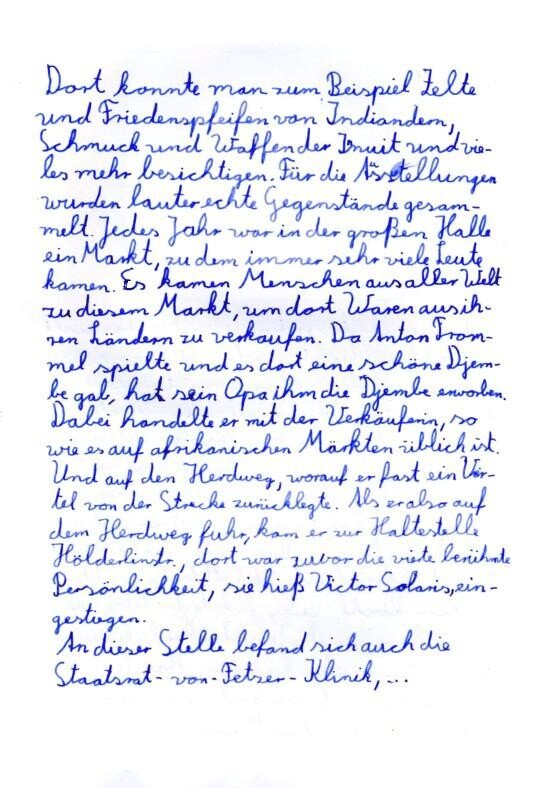 Dort konnte man zum Beispiel Zelte
und Friedenspfeifen von Indiandern,
Schmuck und Waffen der Inuit und vie-
les mehr besichtigen. Für die Austellungen
wurden lauter echte Gegenstände gesam-
melt. Jedes Jahr war in der großen Halle
ein Markt, zu dem immer sehr viele Leute
kamen. Es kamen Menschen aus aller Welt
zu diesem Markt, um dort Waren aus ih-
ren Ländern zu verkaufen. Da Anton Trom-
mel spielte und es dort eine schöne Djem-
be gab, hat sein Opa ihm die Djembe erworben.
Dabei handelte er mit der Verkäuferin, so
wie es auf afrikanischen Märkten üblich ist.
Und auf den Herdweg, worauf er fast ein Vier-
tel von der Strecke zurücklegte. Als er also auf
dem Herdweg fuhr, kam er zur Haltestelle
Hölderlinstr., dort war zuvor die vierte berühmte
Persönlichkeit, sie hieß Victor Solaris, ein-
gestiegen.
An dieser Stelle befand sich auch die
Staatsrat-von-Fetzer-Klinik,...